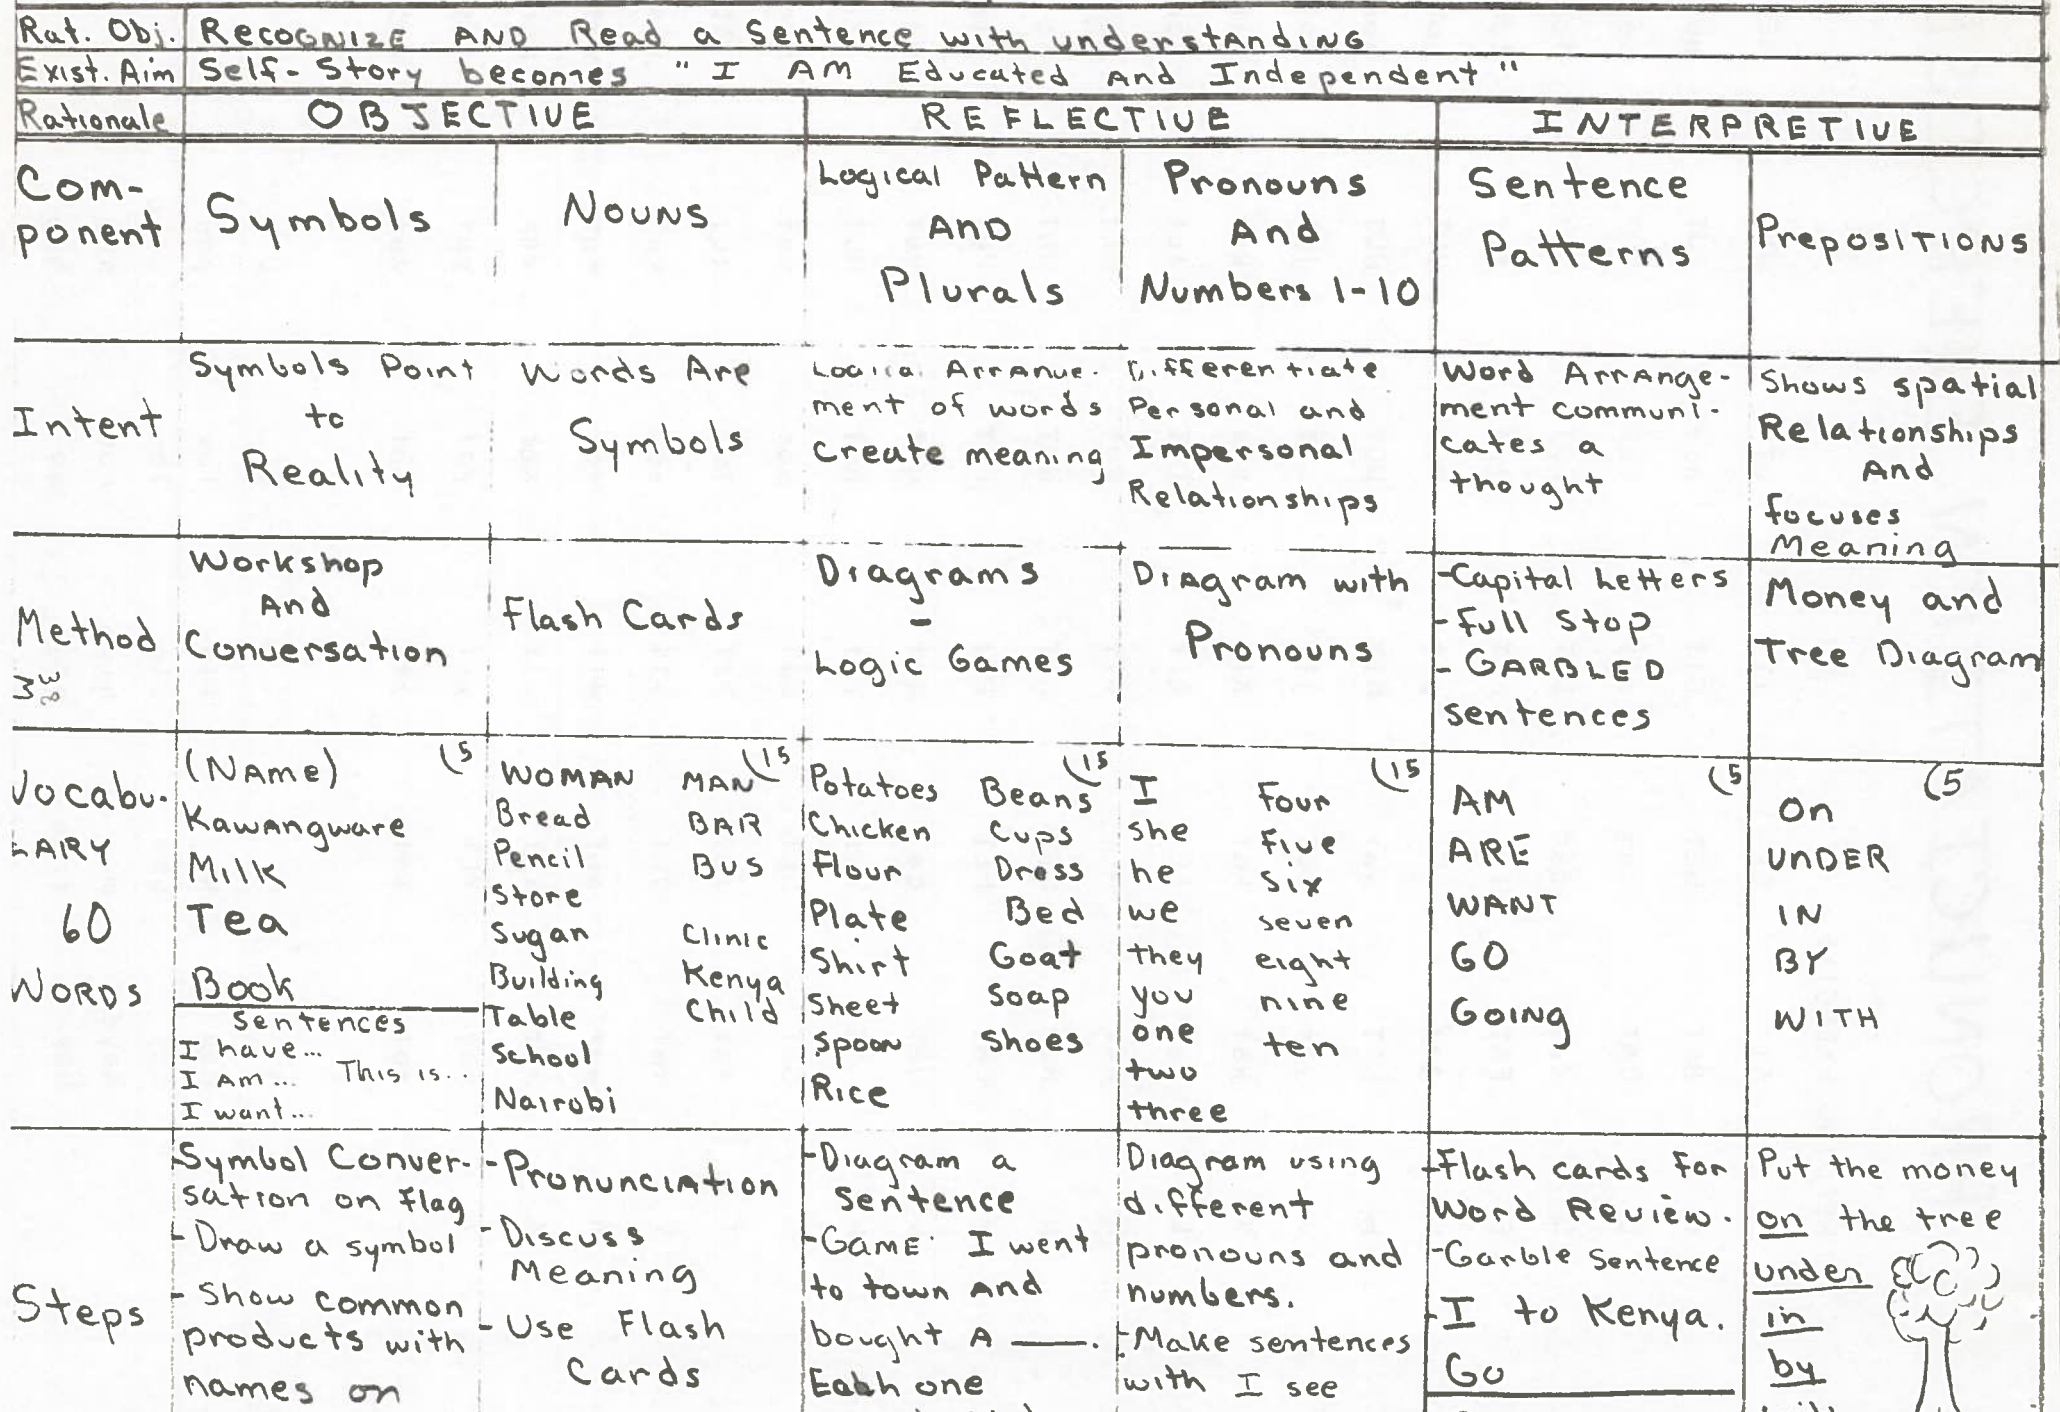 Rat. Obj. Recognize and Read a Sentence with understanding
Exist. Aim Self-Story becomes "I AM Educated And Independent"
Rationale OBJECTIVE REFLECTIVE INTERPRETIVE
Com-
ponent
Symbols
Nouns
Logical Pattern
AND
Plurals
Pronouns
And
Numbers 1-10
Sentence
Patterns
Prepositions
Intent
Symbols Point
to
Reality
Words Are
Symbols
Logical Arrange-
ment of words
Create meaning
Differentiate
Personal and
Impersonal
Relationships
Word Arrange-
ment communi-
cates a
thought
Shows spatial
Relationships
And
focuses
Meaning
Method
Workshop
And
Conversation
Flash Cards
Diagrams
-
Logic Games
Diagram with
Pronouns
-Capital Letters
-Full Stop
-GARBLED
sentences
Money and
Tree Diagram
Vocabu-
LARY
60
WORDS
(Name) (5
Kawangware
Milk
Tea
Book
Sentences
I have...
I Am... This is...
I want...
WOMAN MAN (15
Bread BAR
Pencil BUS
Store
Sugar Clinic
Building Kenya
Table Child
School
Nairobi
Potatoes Beans (15
Chicken Cups
Flour Dress
Plate Bed
Shirt Goat
Sheet Soap
Spoon Shoes
Rice
I Four (15
she Five
he six
we seven
they eight
you nine
one ten
two
three
AM (5
ARE
WANT
GO
GOING
On (5
UNDER
IN
BY
WITH
Steps
-Symbol Conver-
sation on flag
-Draw a symbol
-Show common
products with
names on
-Pronunciation
-Discuss
Meaning
-Use Flash
Cards
-Diagram a
sentence
-GAME: I went
to town and
bought A ___.
Each one
Diagram using
different
pronouns and
numbers.
-Make sentences
with I see
-Flash cards for
Word Review.
-Garble Sentence
-I to Kenya.
Go
Put the money
on the tree
under
in
by